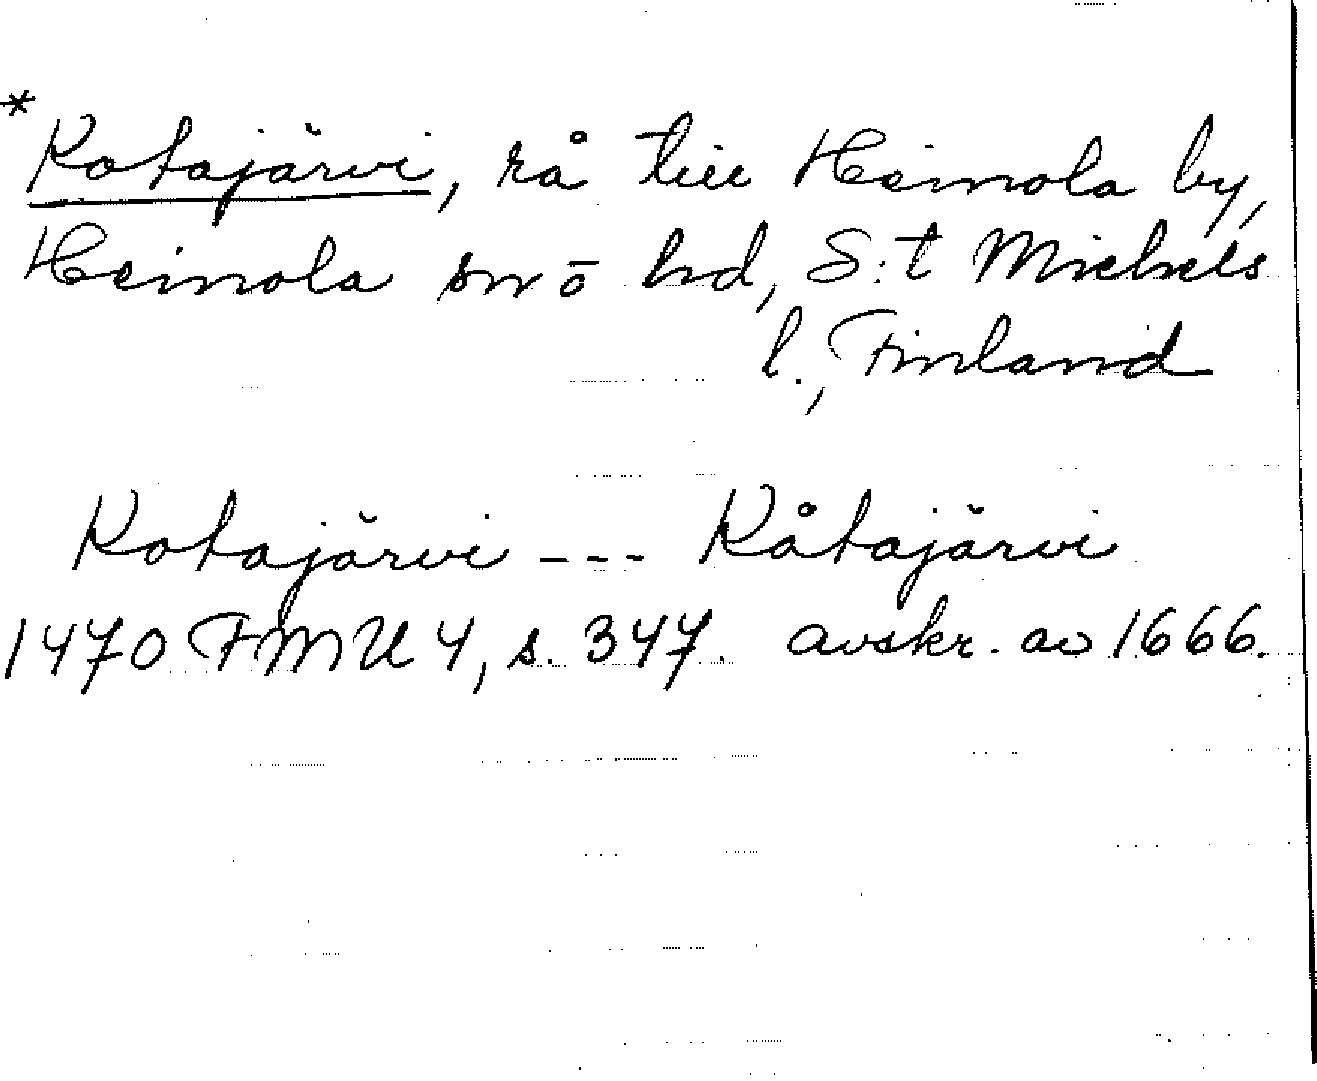 *Kotajärvi, rå till Heinola by,
Heinola sn o hd, S:t Michels
l., Finland
Kotajärvi --- Kåtajärvi
1470 FMU 4, s. 347. avskr. av 1666.